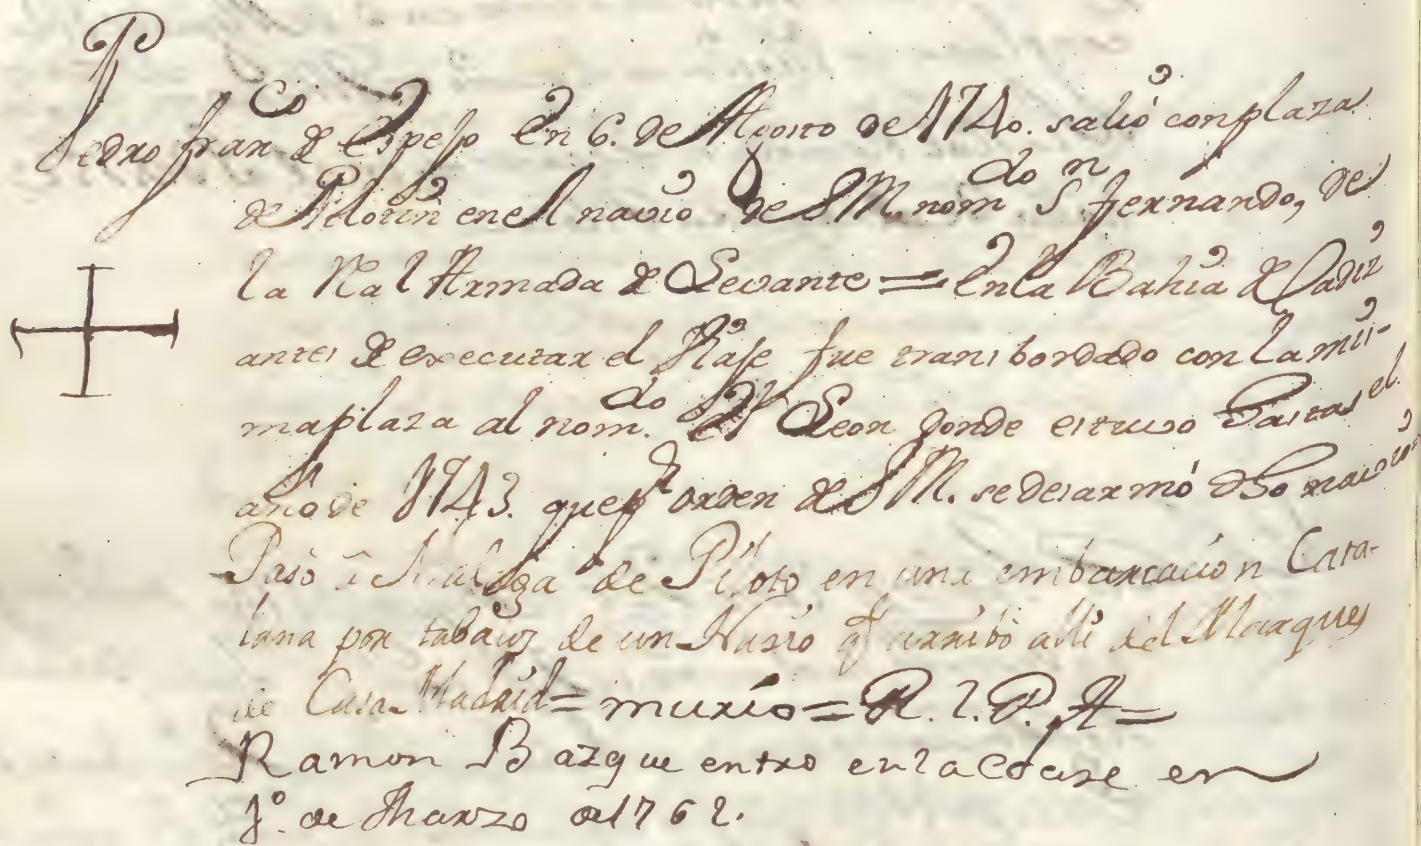 Pedro Fran.co de Espejo En 6. de Agosto de 1740. salió con plaza
de Pilotin en el navio de S M. nom.do S.n fernando, de
la Ral Armada de Levante = En la Bahia de Cadiz
antes de executar el Viaje fue transbordado con la mis-
ma plaza al nom.do el Leon donde estuvo hasta el
año de 1743. que p.r orden de S M. se desarmó dho navio
Pasó à Malaga de Piloto en una embarcacion Cata-
lana por tabacos de un Navio q.e arribó alli del Marques
de Casa Madrid = murio = R. I. P. A =
Ramon Bazque entro en la Clase en
1.º de Marzo de 1762.